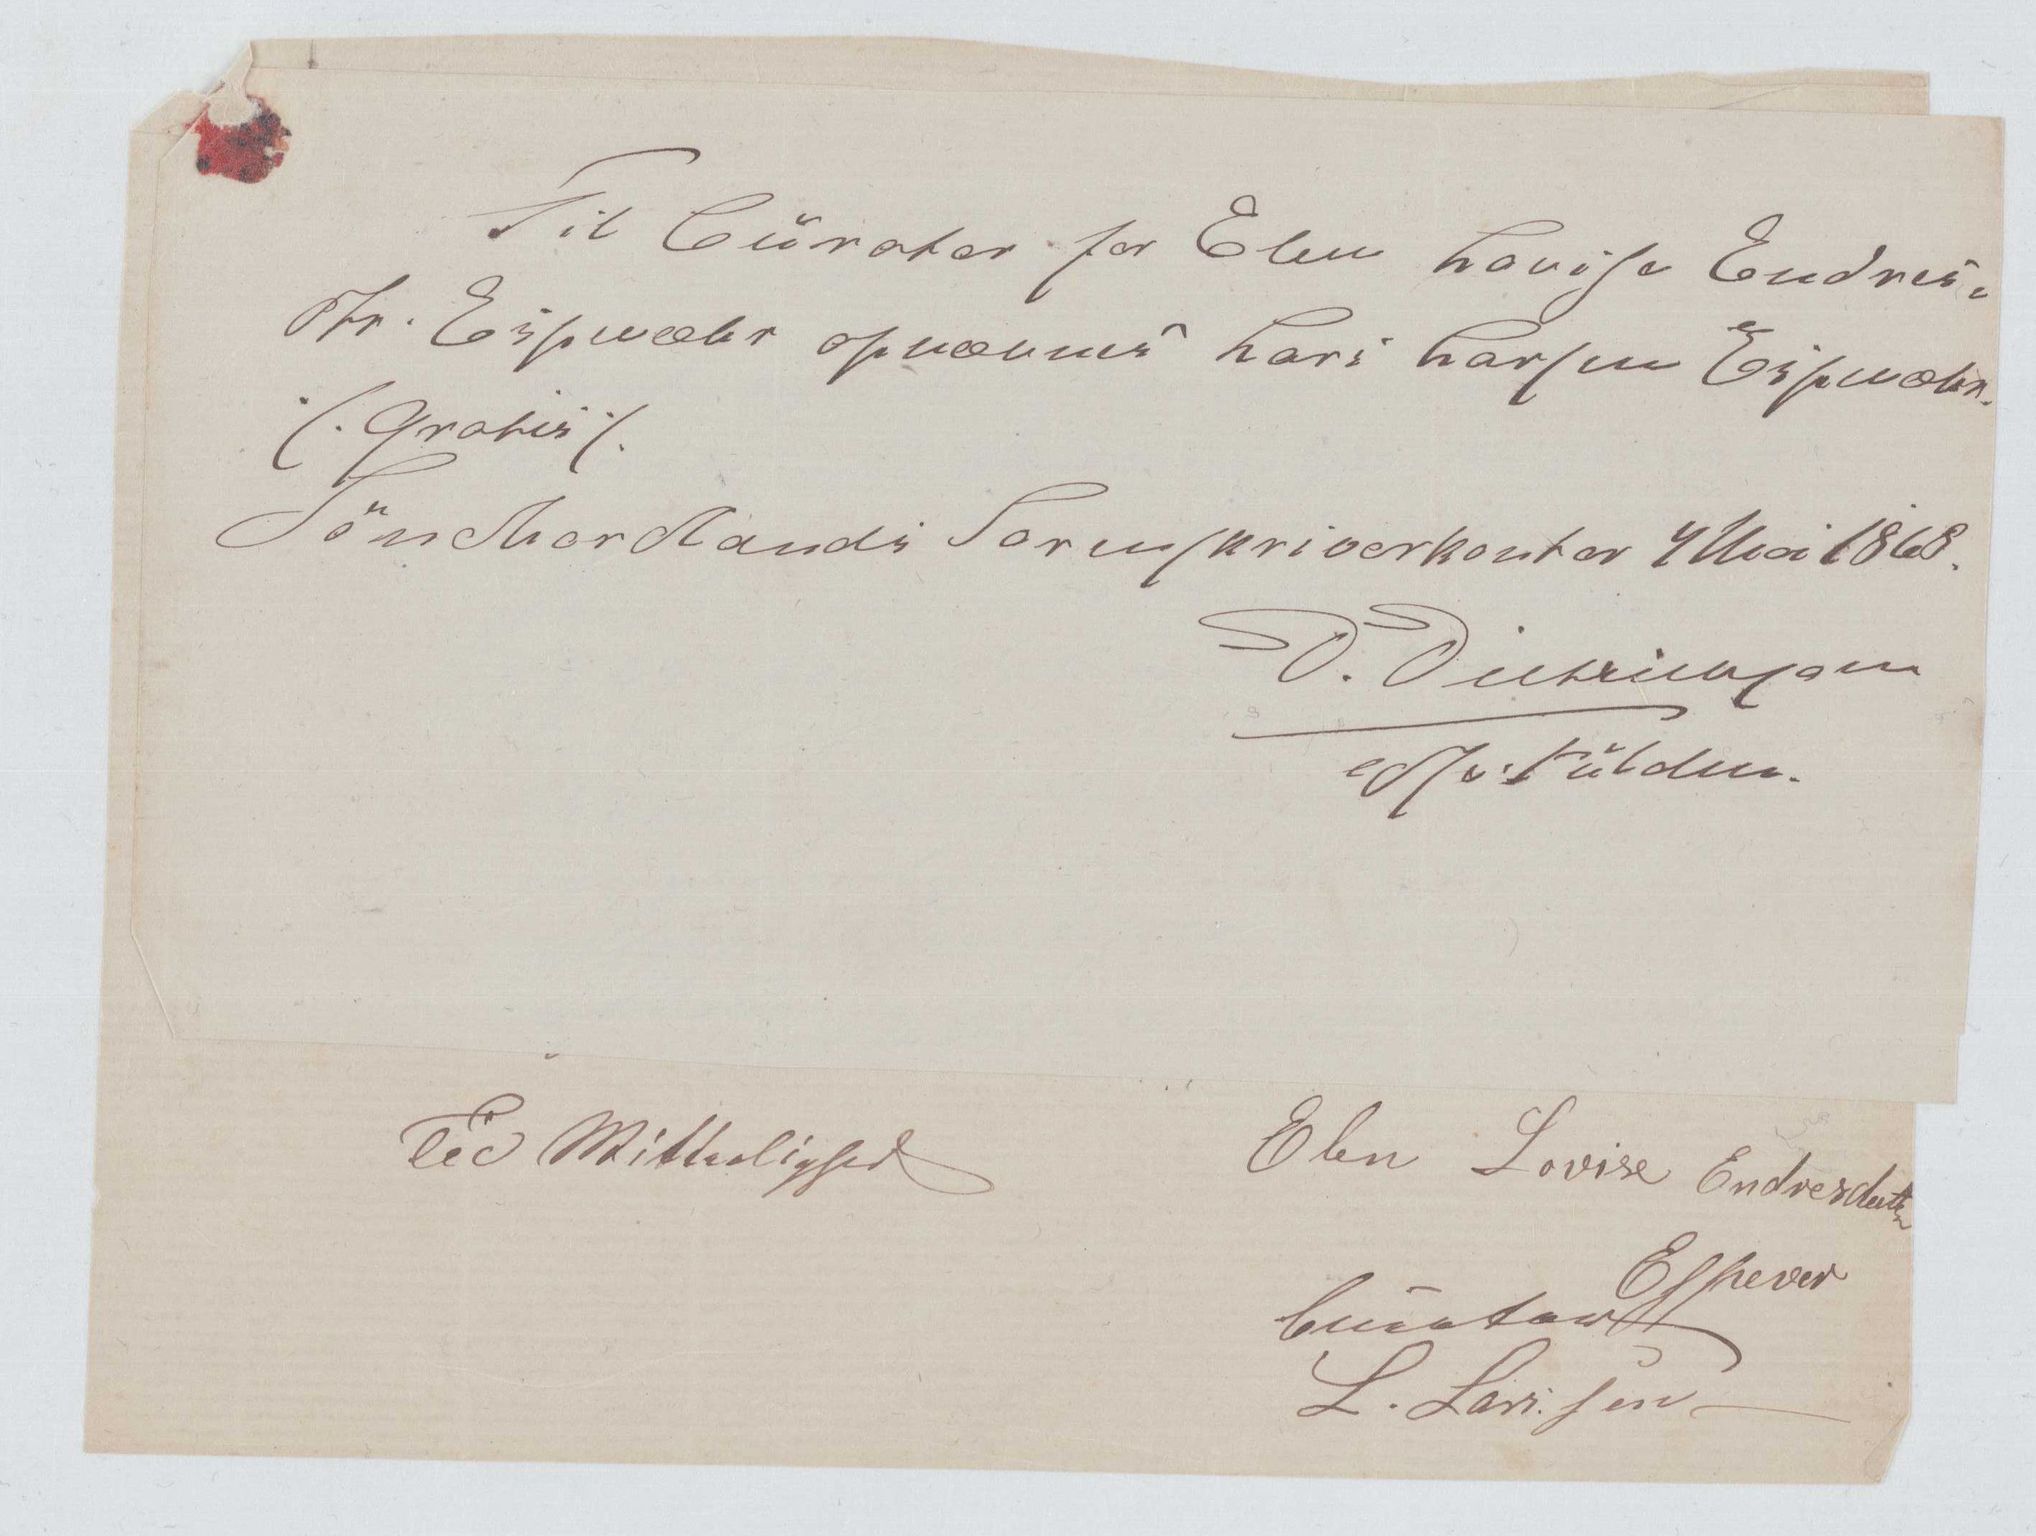 Til Curator for Elen Lovise Endres-
dtr. Espevær opnævnes Lars Larsen Espevær.
/: Gratis :/
Söndhordlands Sorenskriverkontor 4 Mai 1868.
D. Dietrichson
Til Vitterlighed
Elen Lovise Endresdatter
Espever
Curator
L. Larsen